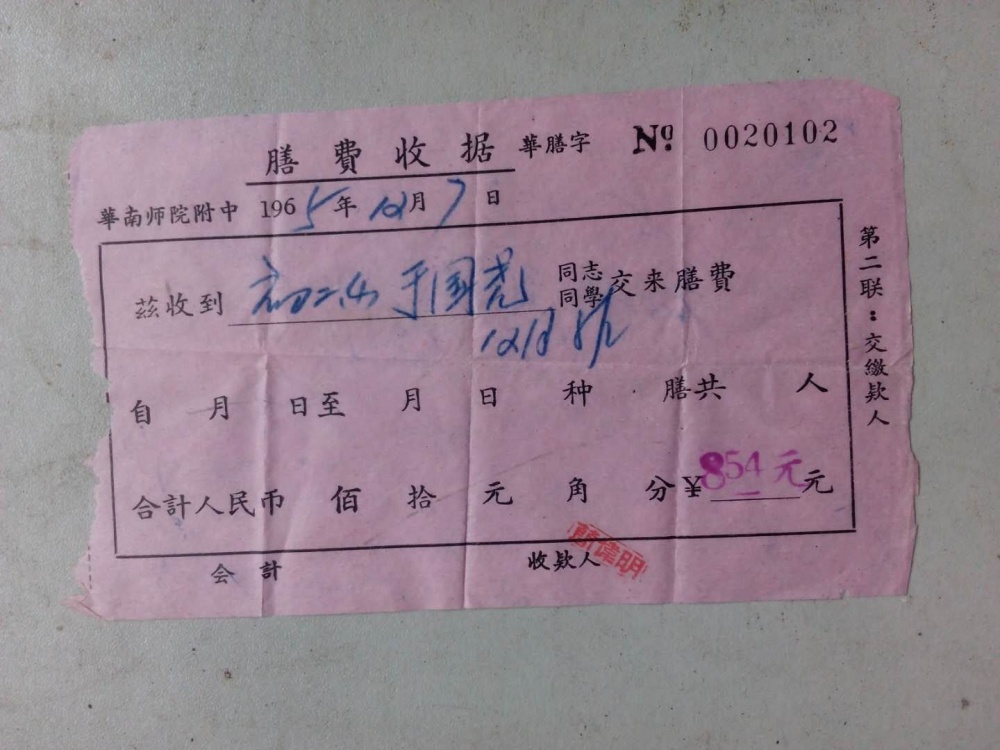 膳費收据 華膳字 № 0020102
華南师院附中 1965年12月7日
茲收到 初二 于国亮 同志 同學 交来膳費
12月
自 月 日至 月 日 种 膳共 人
合計人民币 佰 拾 元 角 分¥854元元
会計 收款人 簡偉明
第二联：交缴款人